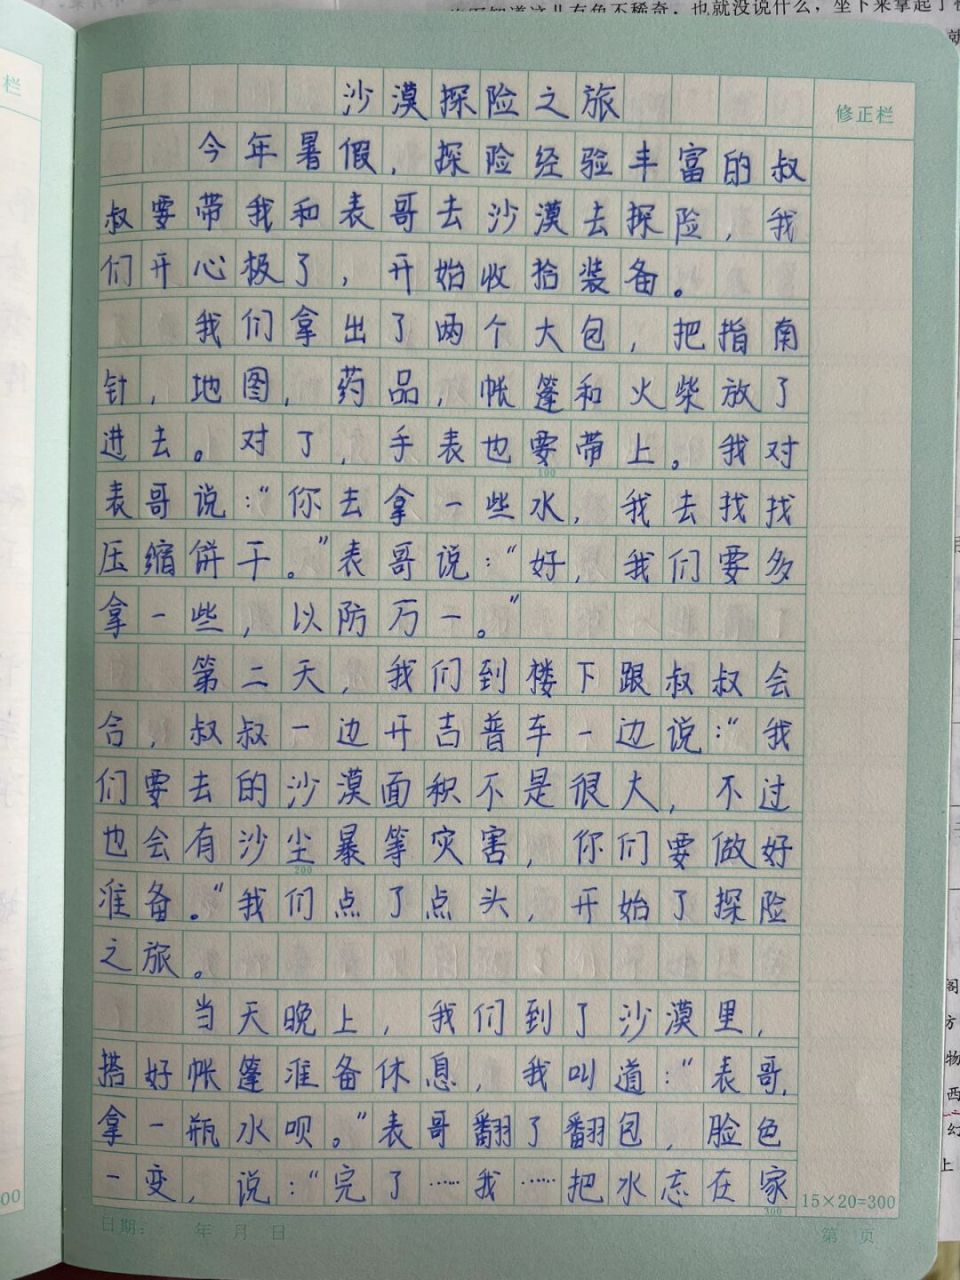 也就没说什么，坐下来拿起了
栏
修正栏
沙漠探险之旅
今年暑假，探险经验丰富的叔
叔要带我和表哥去沙漠去探险，我
们开心极了，开始收拾装备。
我们拿出了两个大包，把指南
针，地图，药品，帐篷和火柴放了
进去。对了，手表也要带上。我对
100
表哥说：“你去拿一些水，我去找找
压缩饼干。”表哥说：“好，我们要多
拿一些，以防万一。”
第二天，我们到楼下跟叔叔会
合，叔叔一边开吉普车一边说：“我
们要去的沙漠面积不是很大，不过
也会有沙尘暴等灾害，你们要做好
200
准备。”我们点了点头，开始了探险
之旅。
当天晚上，我们到了沙漠里，
搭好帐篷准备休息，我叫道：“表哥，
拿一瓶水呗。”表哥翻了翻包，脸色
一变，说：“完了……我……把水忘在家
300
15×20=300
日期： 年 月 日
第 页